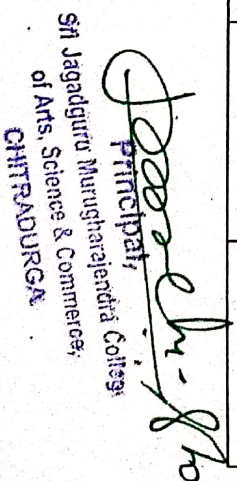 Principal,
Sri Jagadguru Murugharajendra College
of Arts, Science & Commerce,
CHITRADURGA.